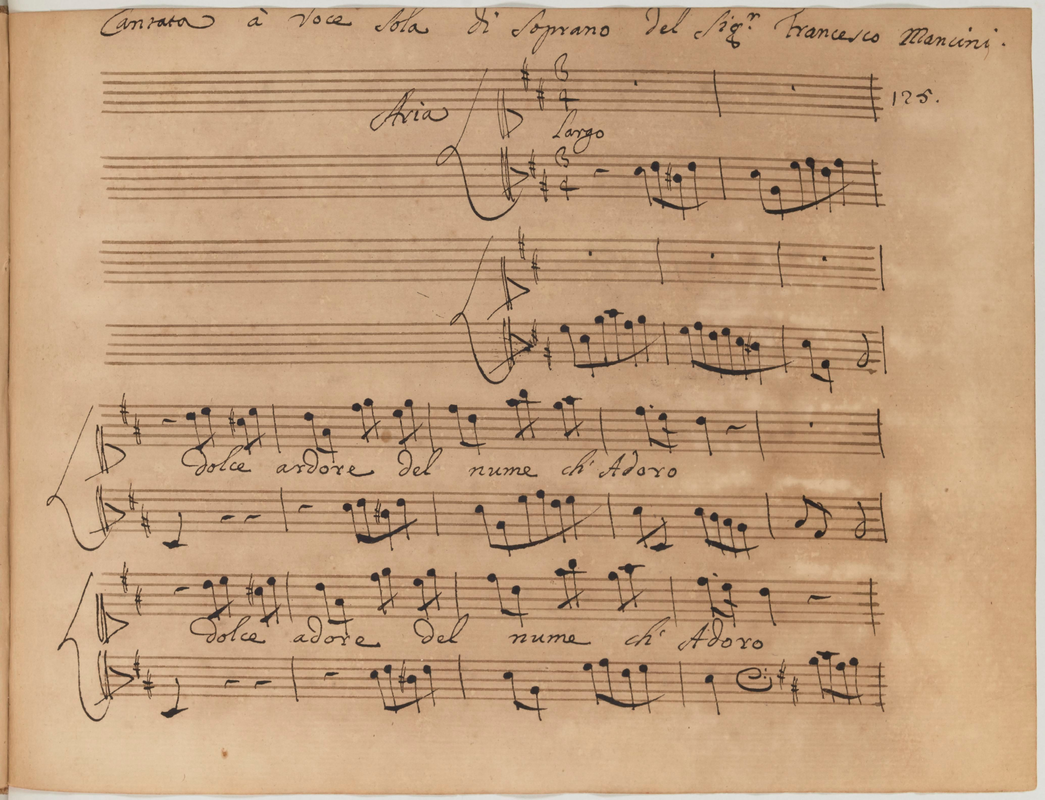 Cantata à Voce Sola di Soprano del Sig.r Francesco Mancini.
125.
Aria
3
4
Largo
3
4
Dolce ardore del nume ch' Adoro
Dolce adore del nume ch' Adoro